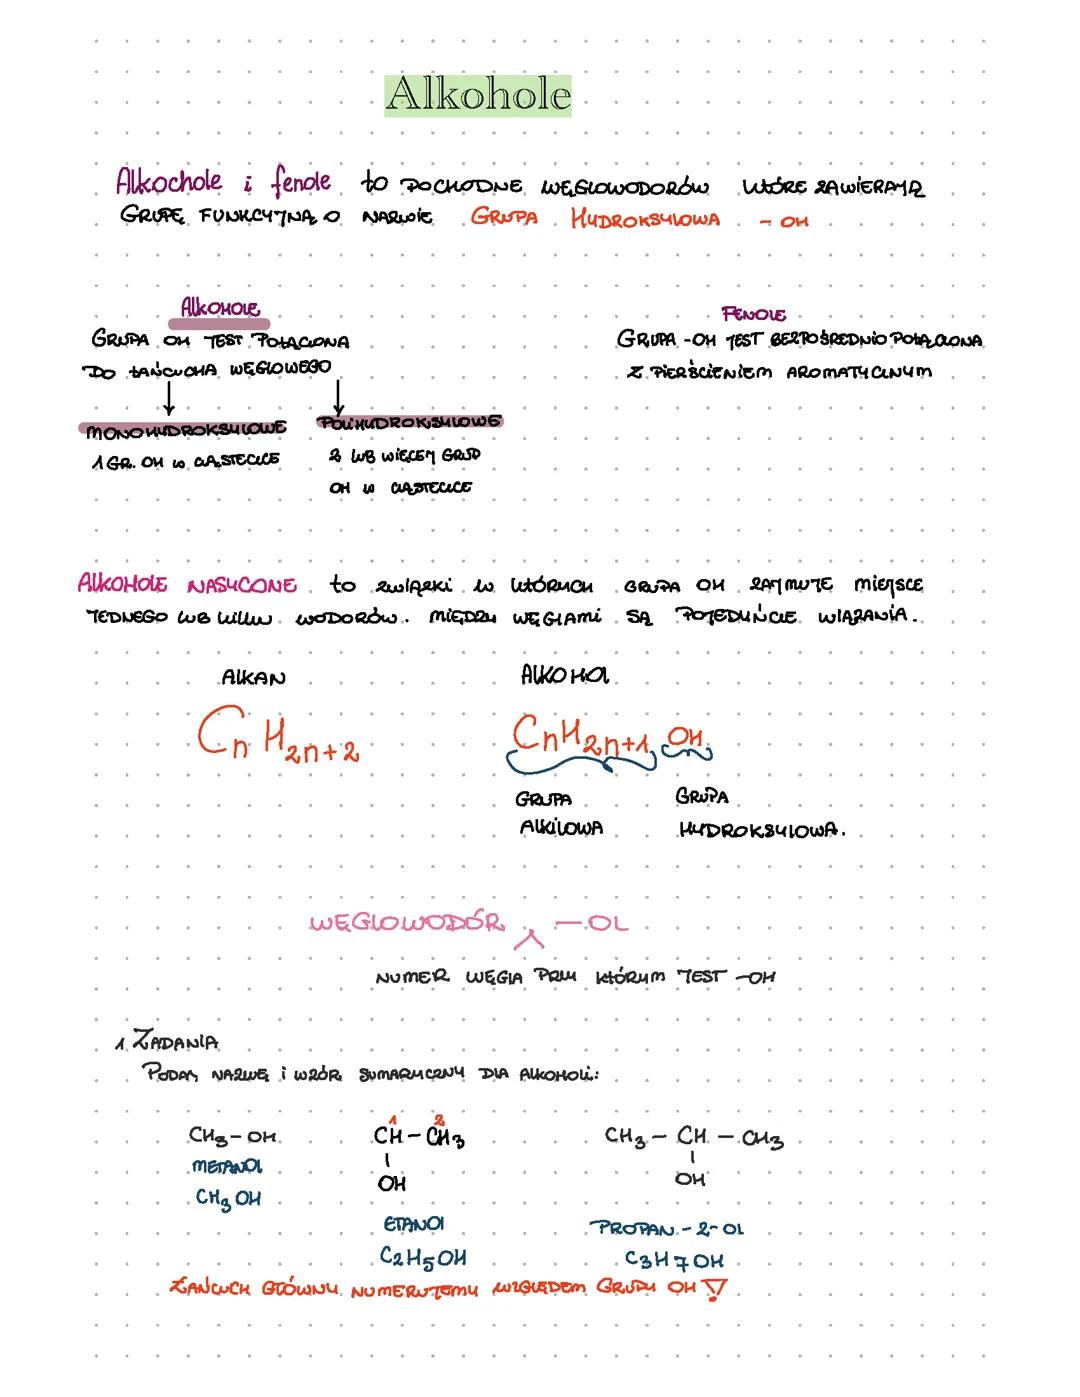 Alkohole
Alkochole i fenole to POCHODNE WĘGLOWODORÓW KTÓRE ZAWIERAJĄ
GRUPĘ FUNKCYJNĄ O NAZWIE GRUPA HYDROKSYLOWA - OH
AlkOHOLE
GRUPA OH JEST POŁĄCZONA
DO ŁAŃCUCHA WĘGLOWEGO
MONOHYDROKSYLOWE
1 GR. OH W CZĄSTECZCE
POLIHYDROKSYLOWE
2 LUB WIĘCEJ GRUP
OH W CZĄSTECZCE
FENOLE
GRUPA -OH JEST BEZPOŚREDNIO POŁĄCZONA
Z PIERŚCIENIEM AROMATYCZNYM
AlkOHOLE NASYCONE to ZWIĄZKI W KTÓRYCH GRUPA OH ZAJMUJE MIEJSCE
JEDNEGO LUB KILKU WODORÓW. MIĘDZY WĘGLAMI SĄ POJEDYŃCZE WIĄZANIA.
AlKAN
CnH2n+2
AlKOHOl
CnH2n+1 OH
GRUPA
AlKilOWA
GRUPA
HYDROKSYLOWA.
WĘGLOWODÓR - OL
NUMER WĘGLA PRZY KTÓRYM JEST -OH
1. ZADANIA
PODAJ NAZWĘ i WZÓR SUMARYCZNY DLA AlKOHOLi:
CH3 - OH
METANOL
CH3 OH
1 2
CH - CH3
|
OH
ETANOl
C2H5OH
CH3 - CH - CH3
|
OH
PROPAN - 2 - OL
C3H7OH
ŁAŃCUCH GŁÓWNY NUMERUJEMY WZGLĘDEM GRUPY OH !